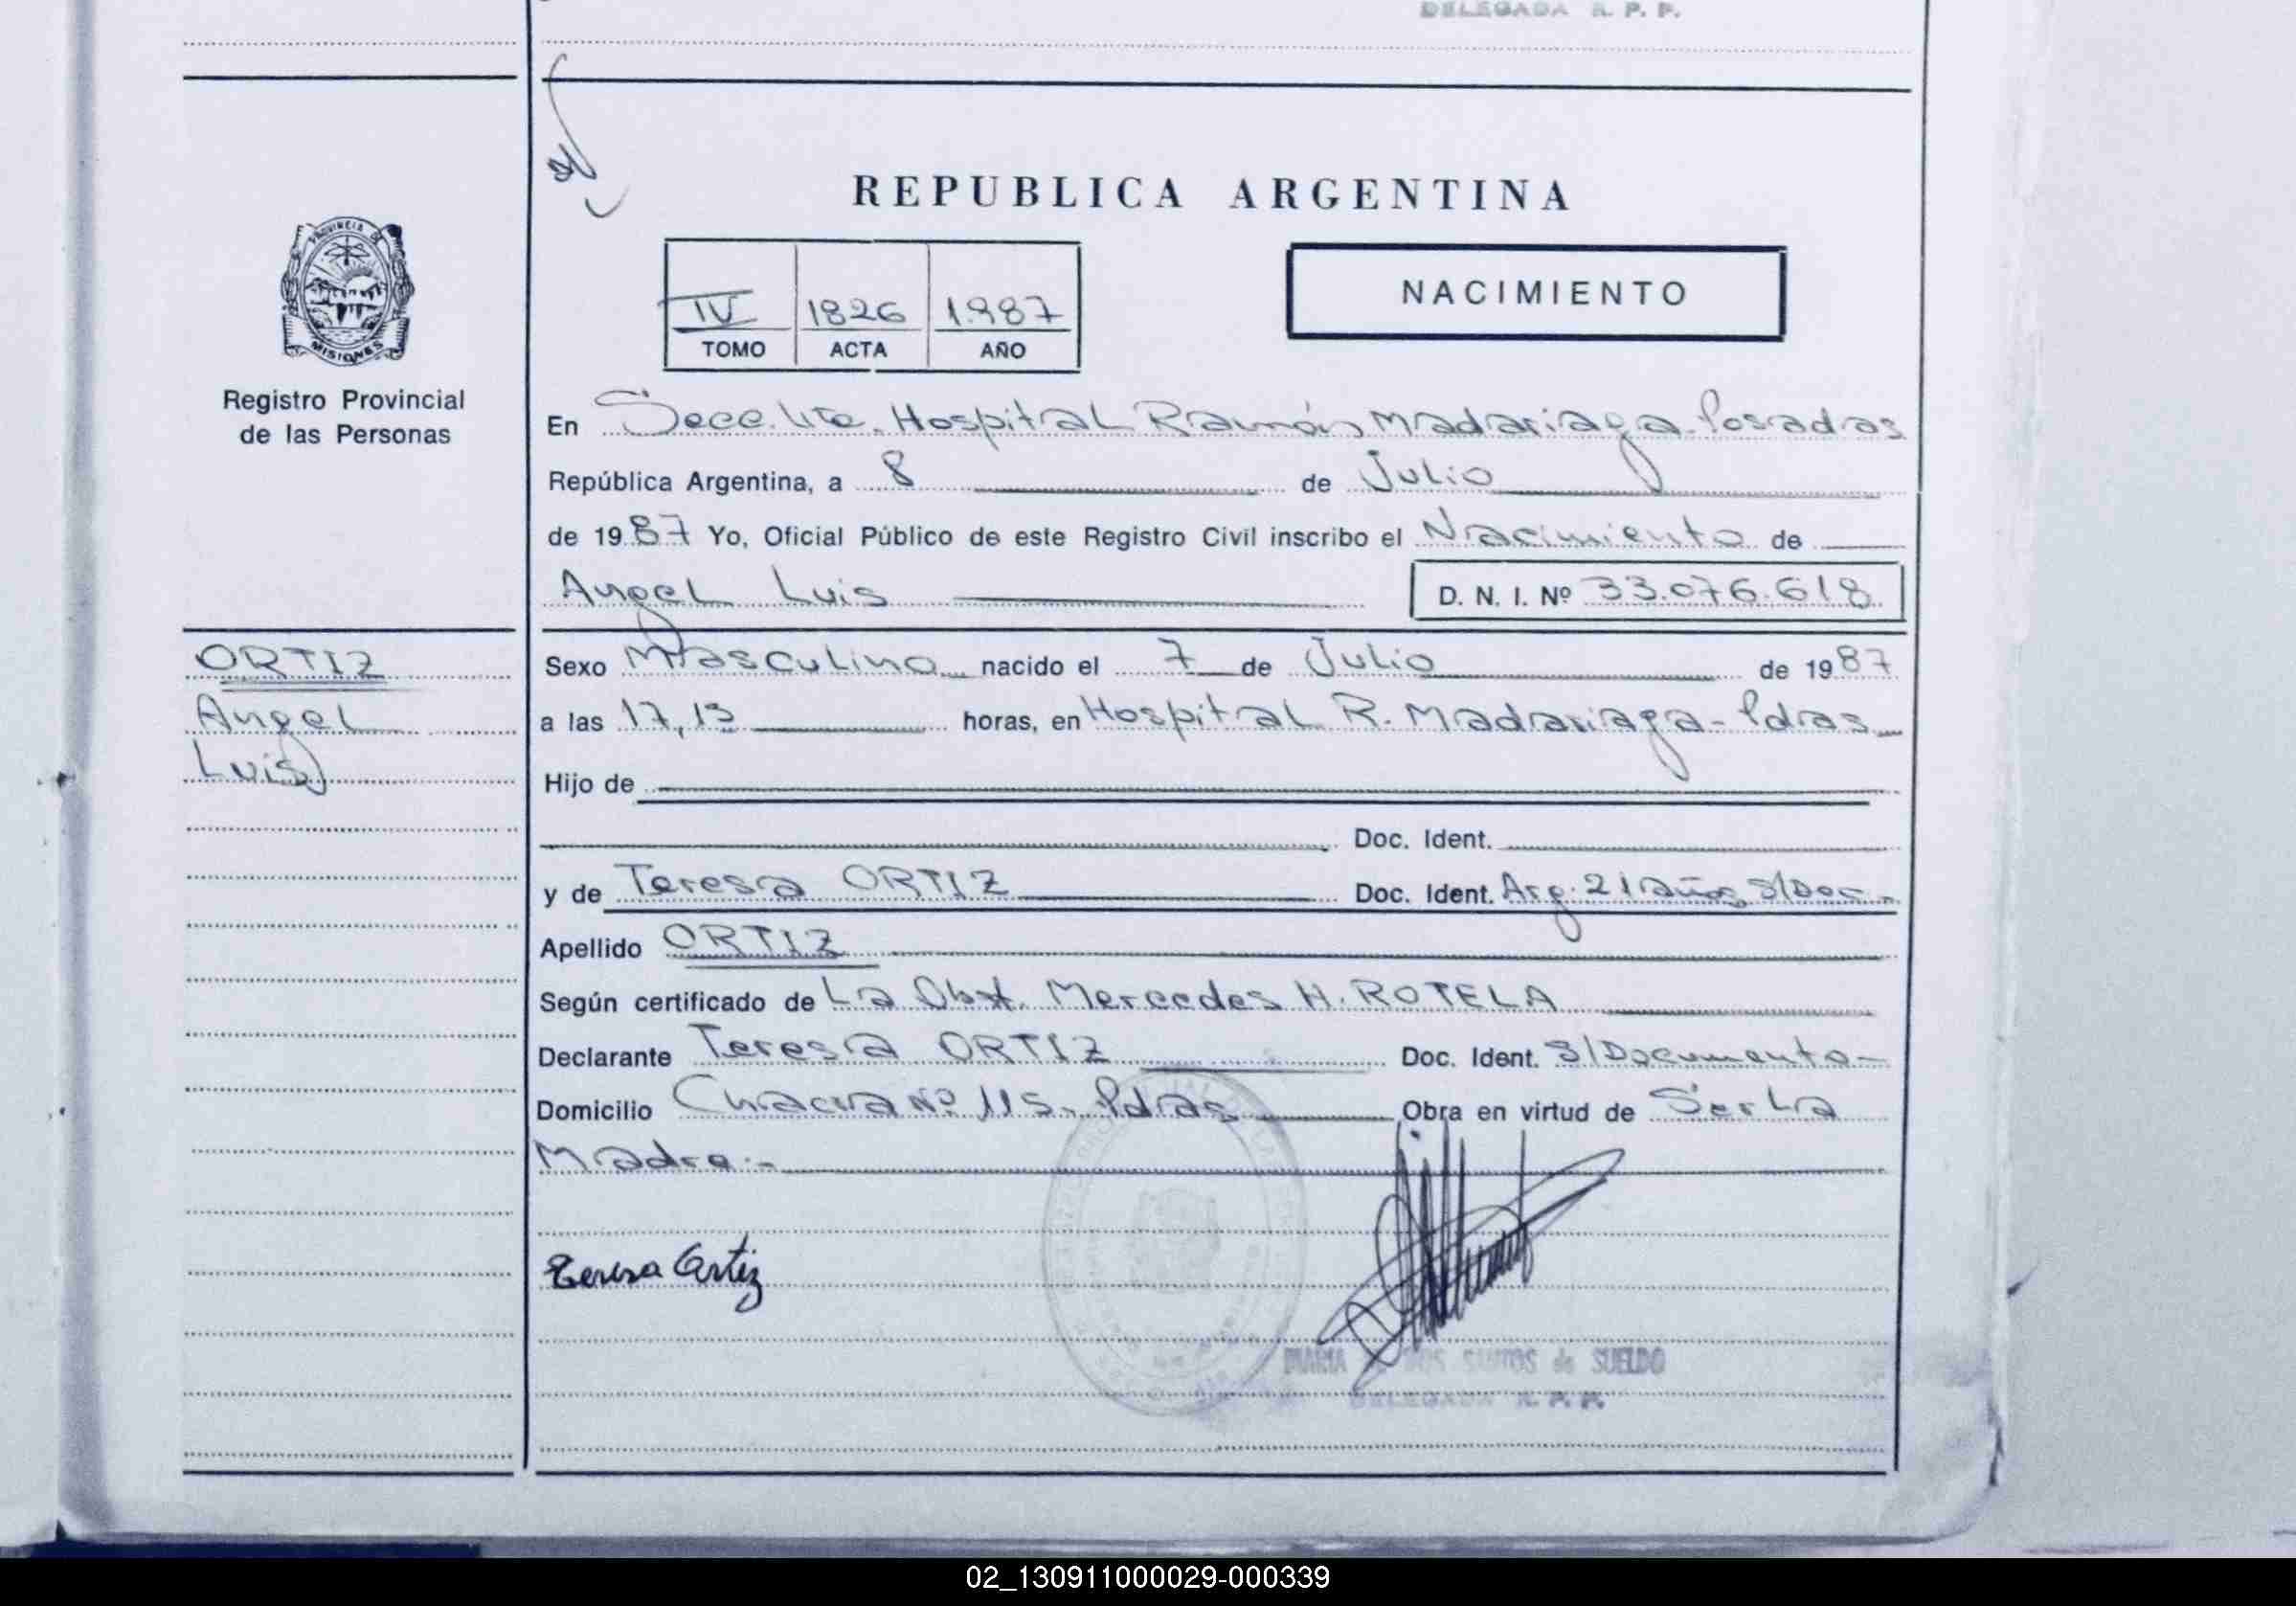 DELEGADA R. P. P.
REPUBLICA ARGENTINA
PROVINCIA DE
MISIONES
Registro Provincial
de las Personas
IV 1826 1987
TOMO ACTA AÑO
NACIMIENTO
En Secc. Hospital Ramón Madariaga. Posadas
República Argentina, a 8 de Julio
de 1987 Yo, Oficial Público de este Registro Civil inscribo el Nacimiento de
Angel Luis D. N. I. Nº 33.076.618
ORTIZ
Angel
Luis
Sexo Masculino nacido el 7 de Julio de 1987
a las 17,15 horas, en Hospital R. Madariaga - Pdas
Hijo de
Doc. Ident.
y de Teresa ORTIZ Doc. Ident. Arg. 21 años S/Doc -
Apellido ORTIZ
Según certificado de La Obst. Mercedes H. ROTELA
Declarante Teresa ORTIZ Doc. Ident. S/Documento -
Domicilio Chacra Nº 115 - Pdas Obra en virtud de Ser La
Madre.-
Teresa Ortiz
MARIA DOS SANTOS de SUELDO
DELEGADA R. P. P.
02_130911000029-000339